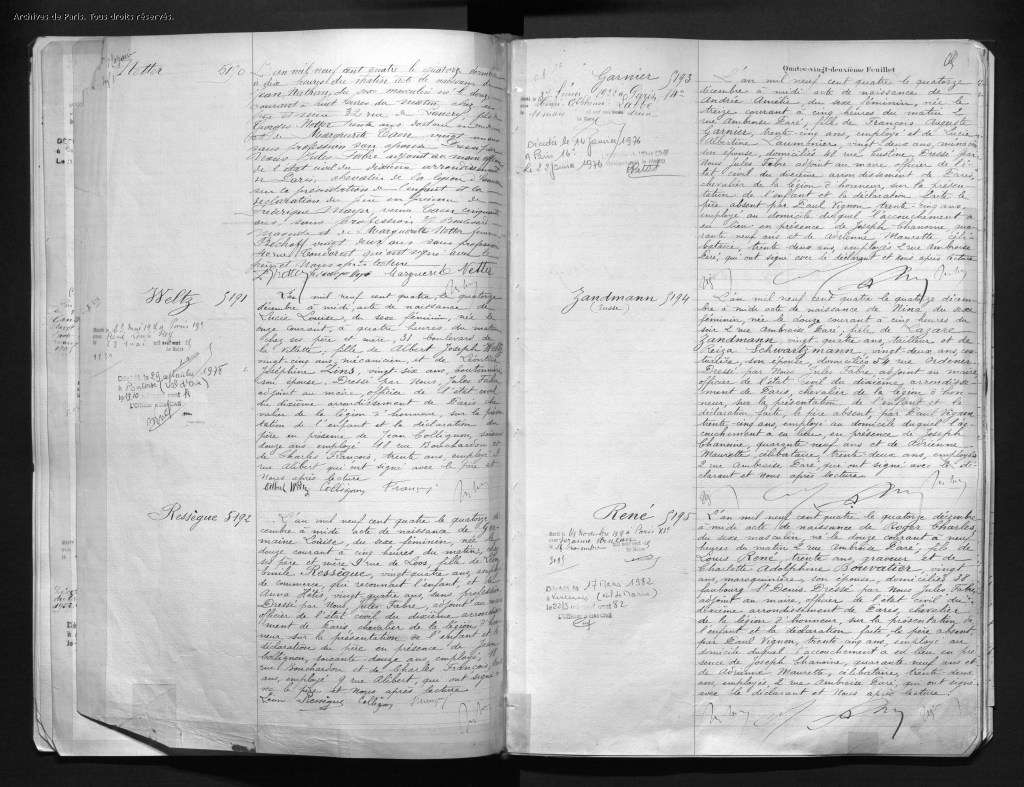 Archives de Paris. Tous droits réservés.
Netter 5190
L'an mil neuf cent quatre le quatorze
du matin acte de naissance de
Jean Nathan, du sexe masculin né le douze
courant à huit heures du matin, chez ses
père et mère 32 rue de fils de
Georges Netter trente ans
et de Marguerite vingt
sans profession son épouse. Dressé par
Nous Jules Fabre adjoint au maire officier
de l'état civil du dixième arrondissement
de Paris, chevalier de la légion d'honneur
sur la présentation de l'enfant et la
déclaration du père en présence de
Mayer, veuve cinquante
ans sans profession
et de Marguerite Netter femme
Bechoff vingt deux ans sans profession
qui ont signé avec le
père et Nous après lecture
Marguerite Netter
Weltz 5191
L'an mil neuf cent quatre le quatorze
décembre à midi, acte de naissance de
Lucie Louise, du sexe féminin, née le
onze courant, à quatre heures du matin
chez ses père et mère, 31 boulevard de
la Villette, fille de Albert Joseph Weltz
vingt-cinq ans, mécanicien, et de Léontine
Joséphine Zins, vingt six ans,
son épouse. Dressé par Nous, Jules Fabre
adjoint au maire, officier de l'état civil
du dixième arrondissement de Paris che-
valier de la légion d'honneur, sur la présen-
tation de l'enfant et la déclaration du
père en présence de Jean Collignon, soixante
douze ans employé 18 rue Bouchardon et
de Charles François, trente ans, employé 9
rue Alibert qui ont signé avec le père et
Nous après lecture
Albert Weltz Collignon François
Mai 1926 à Paris 19e
Décédée 29 septembre 1975
à Pontoise (Val d'Oise)
Ressègue 5192
L'an mil neuf cent quatre le quatorze dé-
cembre à midi acte de naissance de Ger-
maine Louise, du sexe féminin, née le
douze courant à cinq heures du matin, chez
ses père et mère 9 rue de Loos, fille de Léon
Emile Ressègue, vingt-quatre ans, employé
de commerce, qui reconnaît l'enfant, et de
Anna Hélis, vingt quatre ans, sans profession
Dressé par Nous, Jules Fabre, adjoint au maire
officier de l'état civil du dixième arrondisse-
ment de Paris, chevalier de la légion d'hon-
neur sur la présentation de l'enfant et la
déclaration du père en présence de Jean
Collignon, soixante douze ans, employé 18
rue Bouchardon et de Charles François, trente
ans, employé 9 rue Alibert, qui ont signé
avec le père et Nous après lecture
Léon Ressègue Collignon François
Quatre-vingt-deuxième Feuillet
Garnier 5193
1922 à Paris, 14e
Décédée le 14 janvier 1976
à Paris 16e
le 22 janvier 1976
L'an mil neuf cent quatre le quatorze
décembre à midi acte de naissance de
Andrée Amélie, du sexe féminin, née le
treize courant à cinq heures du matin 2
rue Ambroise Paré, fille de François Auguste
Garnier, trente cinq ans, employé et de Lucie
Albertine Laumbinier, vingt-deux ans,
son épouse, domiciliés 48 rue Custine. Dressé par
Nous Jules Fabre adjoint au maire officier de l'é-
tat civil du dixième arrondissement de Paris,
chevalier de la légion d'honneur, sur la présen-
tation de l'enfant et la déclaration faite le
père absent par Paul Vignon trente-cinq ans,
employé au domicile duquel l'accouchement a
eu lieu en présence de Joseph Chanoine, qua-
rante neuf ans et de Adrienne Maurette céli-
bataire, trente deux ans, employés 2 rue Ambroise
Paré, qui ont signé avec le déclarant et Nous après lecture
Zandmann 5194
(russe)
L'an mil neuf cent quatre le quatorze décem-
bre à midi acte de naissance de Nina, du sexe
féminin, née le douze courant à cinq heures du
soir 2 rue Ambroise Paré, fille de Lazare
Zandmann, vingt quatre ans, tailleur et de
Reiza Schwartzmann, vingt-deux ans cou-
turière, son épouse, domiciliés 54 rue Ordener
Dressé par Nous Jules Fabre adjoint au maire
officier de l'état civil du dixième arrondisse-
ment de Paris, chevalier de la légion d'hon-
neur, sur la présentation de l'enfant et la
déclaration faite, le père absent, par Paul Vignon
trente-cinq ans, employé au domicile duquel l'ac-
couchement a eu lieu, en présence de Joseph
Chanoine, quarante neuf ans et de Adrienne
Maurette, célibataire, trente-deux ans, employés
2 rue Ambroise Paré, qui ont signé avec le dé-
clarant et Nous après lecture
René 5195
14 Novembre à Paris XIe
Décédé 17 Mars 1982
à Vincennes (Val de Marne)
L'an mil neuf cent quatre le quatorze décembre
à midi acte de naissance de Roger Charles,
du sexe masculin, né le douze courant à neuf
heures du matin 2 rue Ambroise Paré, fils de
Louis René, trente ans, graveur et de
Charlotte Adolphine Bouvatier, vingt
ans, maroquinière, son épouse, domiciliés 38
faubourg St Denis. Dressé par Nous Jules Fabre,
adjoint au maire, officier de l'état civil du di-
xième arrondissement de Paris, chevalier
de la légion d'honneur, sur la présentation de
l'enfant et la déclaration faite, le père absent,
par Paul Vignon, trente-cinq ans, employé au
domicile duquel l'accouchement a eu lieu en pré-
sence de Joseph Chanoine, quarante neuf ans et
de Adrienne Maurette, célibataire, trente-deux
ans, employés, 2 rue Ambroise Paré, qui ont signé
avec le déclarant et Nous après lecture.